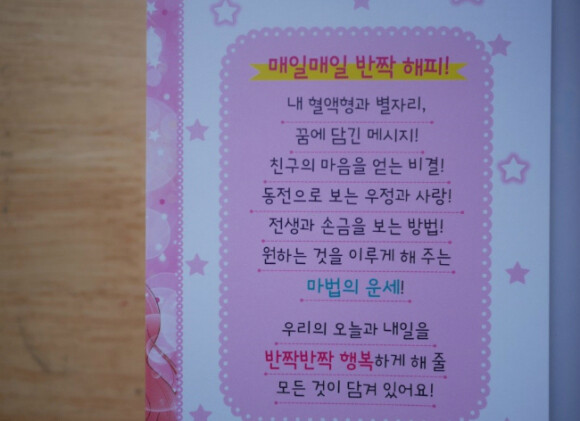 매일매일 반짝 해피!
내 혈액형과 별자리,
꿈에 담긴 메시지!
친구의 마음을 얻는 비결!
동전으로 보는 우정과 사랑!
전생과 손금을 보는 방법!
원하는 것을 이루게 해 주는
마법의 운세!
우리의 오늘과 내일을
반짝반짝 행복하게 해 줄
모든 것이 담겨 있어요!